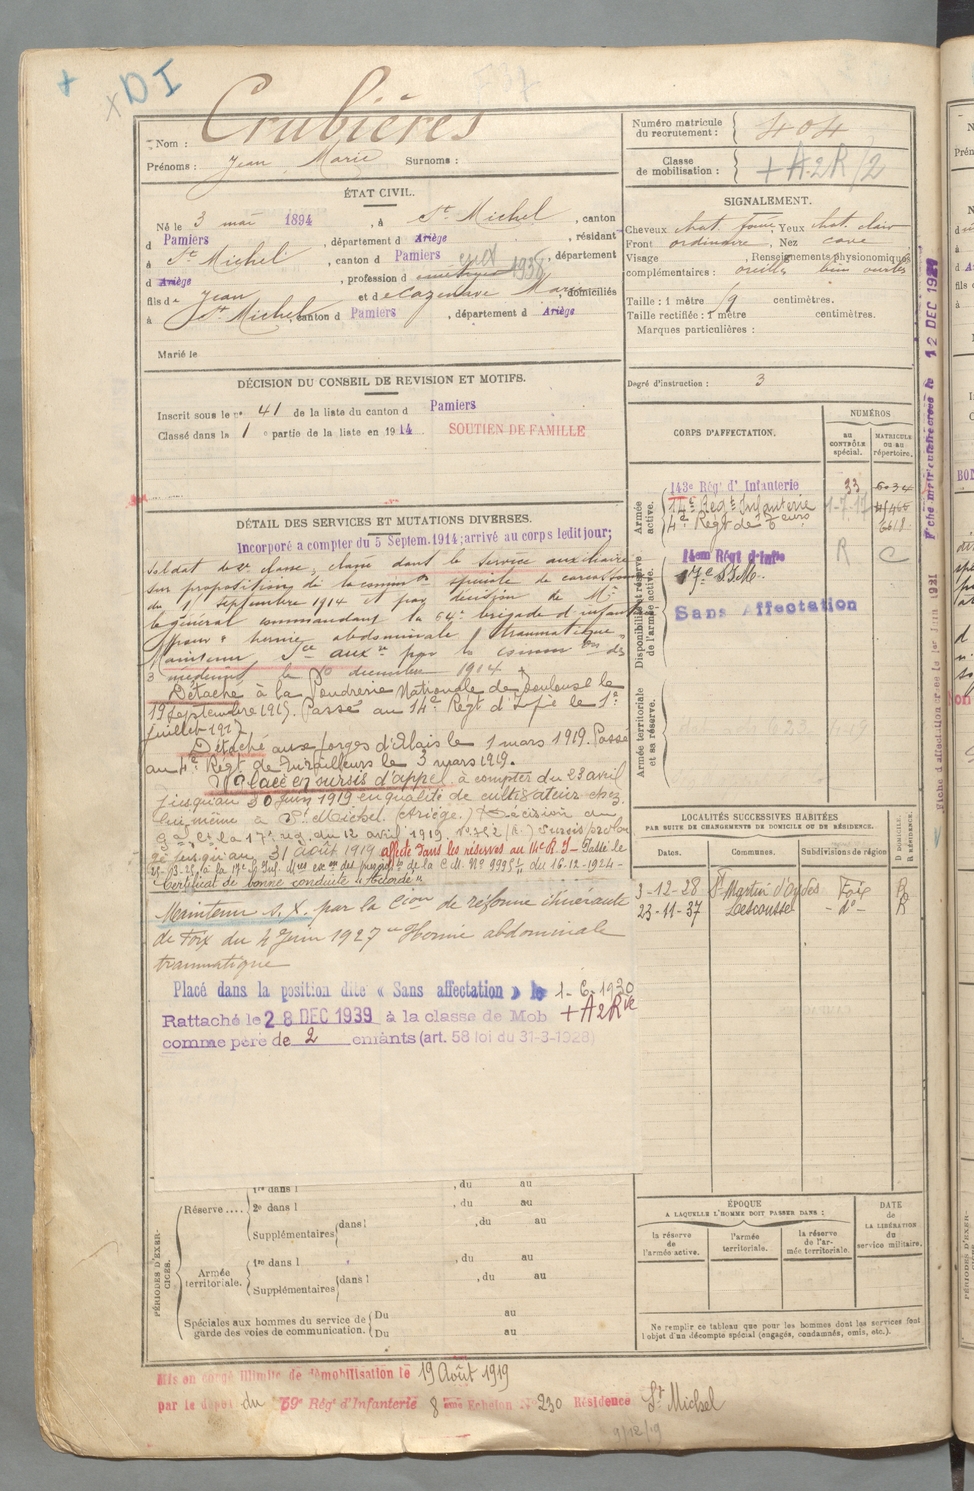 + x D I
Nom : Crubières
Prénoms : Jean Marie Surnoms :
Numéro matricule du recrutement : 404
Classe de mobilisation : + A 2R/2
ÉTAT CIVIL.
Né le 3 mai 1894, à St Michel, canton
d Pamiers, département d Ariège, résidant
à St Michel, canton d Pamiers, département
d Ariège, profession d cult 1938
fils de Jean et de Cazeneuve Marie domiciliés
à St Michel, canton d Pamiers, département d Ariège
Marié le
SIGNALEMENT.
Cheveux chat. foncé, Yeux chat. clair
Front ordinaire, Nez cave
Visage , Renseignements physionomiques
complémentaires : oreilles bien ourlées
Taille : 1 mètre centimètres.
Taille rectifiée : 1 mètre centimètres.
Marques particulières :
Degré d'instruction : 3
DÉCISION DU CONSEIL DE REVISION ET MOTIFS.
Inscrit sous le n° 41 de la liste du canton d Pamiers
Classé dans la 1 e partie de la liste en 1914 SOUTIEN DE FAMILLE
DÉTAIL DES SERVICES ET MUTATIONS DIVERSES.
Incorporé a compter du 5 Septem. 1914; arrivé au corps ledit jour;
soldat de 2e classe, classé dans le service auxiliaire
sur proposition de la commton spéciale de
du 1 septembre 1914 et par décision de Mr
le général commandant la 64e brigade d'infanterie
pour « hernie abdominale traumatique »
Maintenu Sce auxre par la commion des
3 médecins le décembre 1914
Détaché à la Poudrerie Nationale de Toulouse le
19 Septembre 1915. Passé au 14e Régt d'Infie le 1er
juillet 1917
Détaché aux forges d'Alais le 1 mars 1919. Passé
au 4e Régt de Tirailleurs le 3 mars 1919.
Placé en sursis d'appel, à compter du 23 avril
jusqu'au 30 juin 1919 en qualité de cultivateur chez
lui même à St Michel. (Ariège.) Décision du
gal Ct la 17e rég. du 12 avril 1919. Sursis prolon
gé jusqu'au 31 août 1919 affecté dans les réserves au 14e R I - Passé le
du 16-12-1924 -
"Certificat de bonne conduite "Accordé"
Maintenu s. X. par la Cion de réforme itinérante
de Foix du 4 Juin 1927 "Hernie abdominale
traumatique
Placé dans la position dite « Sans affectation » le 1-6-1930
Rattaché le 28 DEC 1939 à la classe de Mob + A 2 R ie
comme père de 2 enfants (art. 58 loi du 31-3-1928)
CORPS D'AFFECTATION.
NUMÉROS
au CONTRÔLE spécial.
MATRICULE ou au répertoire.
Armée active.
143e Régt d'Infanterie 33 6034
14e Régt Infanterie
4e Régt de Tirailleurs
Disponibilité et réserve de l'armée active.
14em Régt d'Infie R C
17e S.I.M.
Sans Affectation
Armée territoriale et sa réserve.
LOCALITÉS SUCCESSIVES HABITÉES
PAR SUITE DE CHANGEMENTS DE DOMICILE OU DE RÉSIDENCE.
Dates. Communes. Subdivisions de région D DOMICILE. R RÉSIDENCE.
3-12-28 St Martin d'Oydes Foix R
23-11-37 Lescousse -do- R
PÉRIODES D'EXERCICES.
Réserve....
1re dans l , du au
2e dans l , du au
Supplémentaires dans l , du au
Armée territoriale.
1re dans l , du au
Supplémentaires dans l , du au
Spéciales aux hommes du service de garde des voies de communication.
Du au
Du au
ÉPOQUE
A LAQUELLE L'HOMME DOIT PASSER DANS :
la réserve de l'armée active.
l'armée territoriale.
la réserve de l'armée territoriale.
DATE de LA LIBÉRATION du service militaire.
Ne remplir ce tableau que pour les hommes dont les services font
l'objet d'un décompte spécial (engagés, condamnés, omis, etc.).
Mis en congé illimité de démobilisation le 19 Août 1919
par le dépôt du 59e Régt d'Infanterie 8 ème Echelon N° 230 Résidence St Michel
9/12/19
Fiche matricule créée le 12 DEC 1921
Fiche d'affectation créée le 1er Juin 1931